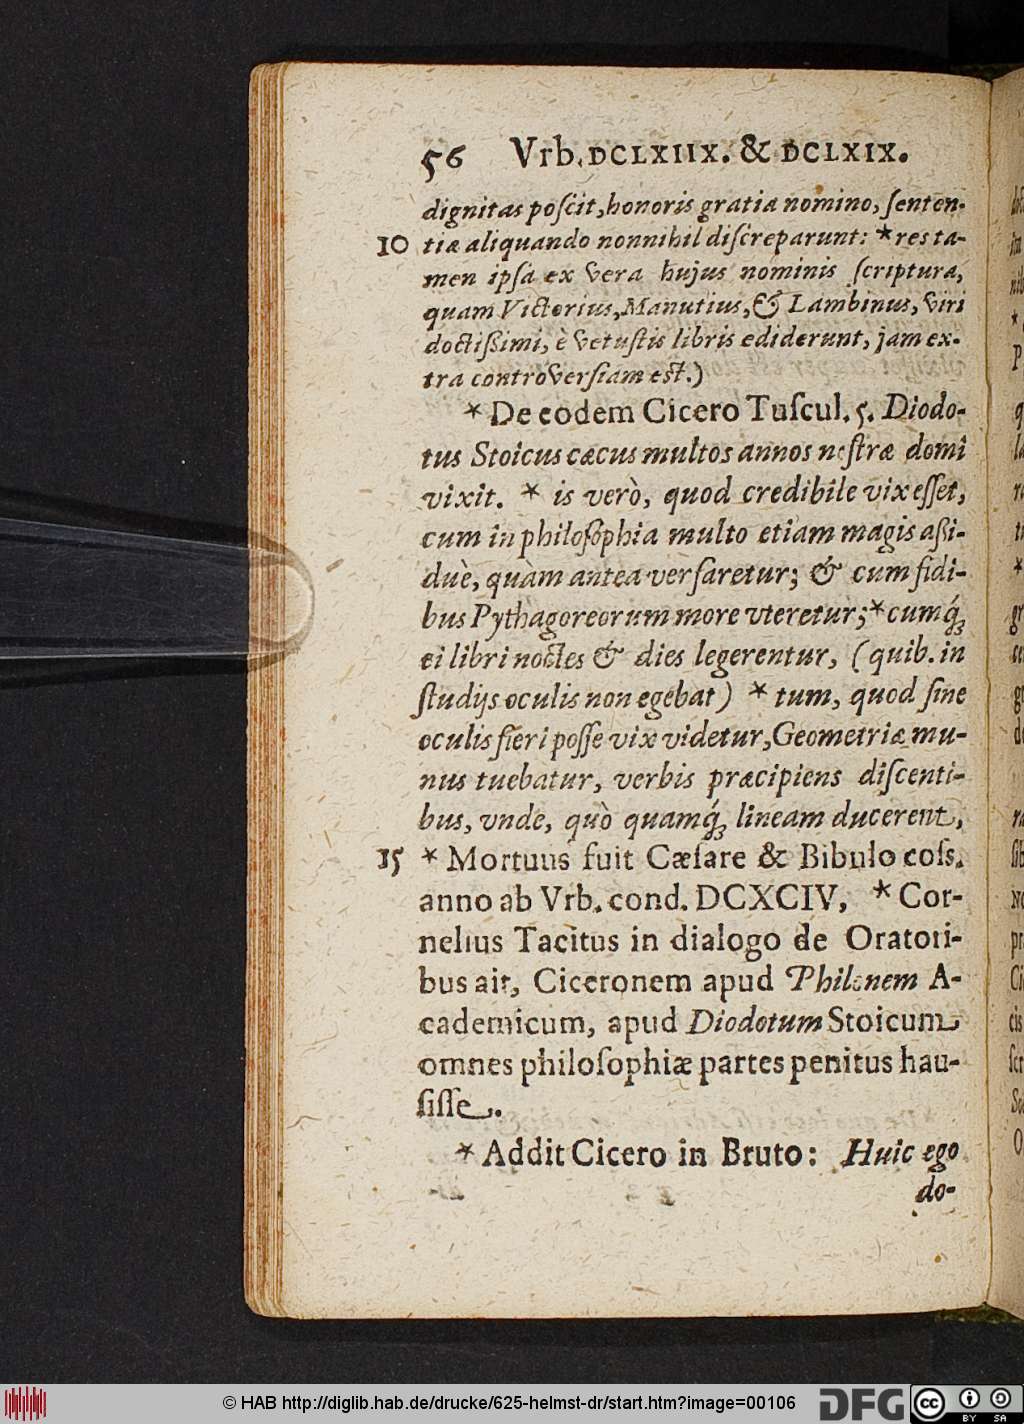 56 Vrb. DCLXIIX. & DCLXIX.
dignitas poſcit, honoris gratiâ nomino, ſenten-
10 tiæ aliquando nonnihil diſcreparunt: * res ta-
men ipſa ex vera hujus nominis ſcriptura,
quam Victorius, Manutius, & Lambinus, viri
doctiſsimi, è vetuſtis libris ediderunt, jam ex-
tra controverſiam est.)
* De eodem Cicero Tuſcul. 5. Diodo-
tus Stoicus cæcus multos annos noſtræ domi
vixit. * is verò, quod credibile vix eſſet,
cum in philoſophia multo etiam magis aßi-
duè, quàm antea verſaretur; & cum fidi-
bus Pythagoreorum more vteretur; * cumq́;
ei libri noctes & dies legerentur, (quib. in
ſtudijs oculis non egebat) * tum, quod ſine
oculis fieri poſſe vix videtur, Geometriæ mu-
nus tuebatur, verbis præcipiens diſcenti-
bus, vnde, quò quamq́; lineam ducerent,
15 * Mortuus fuit Cæſare & Bibulo coſs.
anno ab Vrb. cond. DCXCIV, * Cor-
nelius Tacitus in dialogo de Oratori-
bus ait, Ciceronem apud Philonem A-
cademicum, apud Diodotum Stoicum
omnes philoſophiæ partes penitus hau-
ſiſſe.
* Addit Cicero in Bruto: Huic ego
do-
© HAB http://diglib.hab.de/drucke/625-helmst-dr/start.htm?image=00106
DFG
cc
BY SA